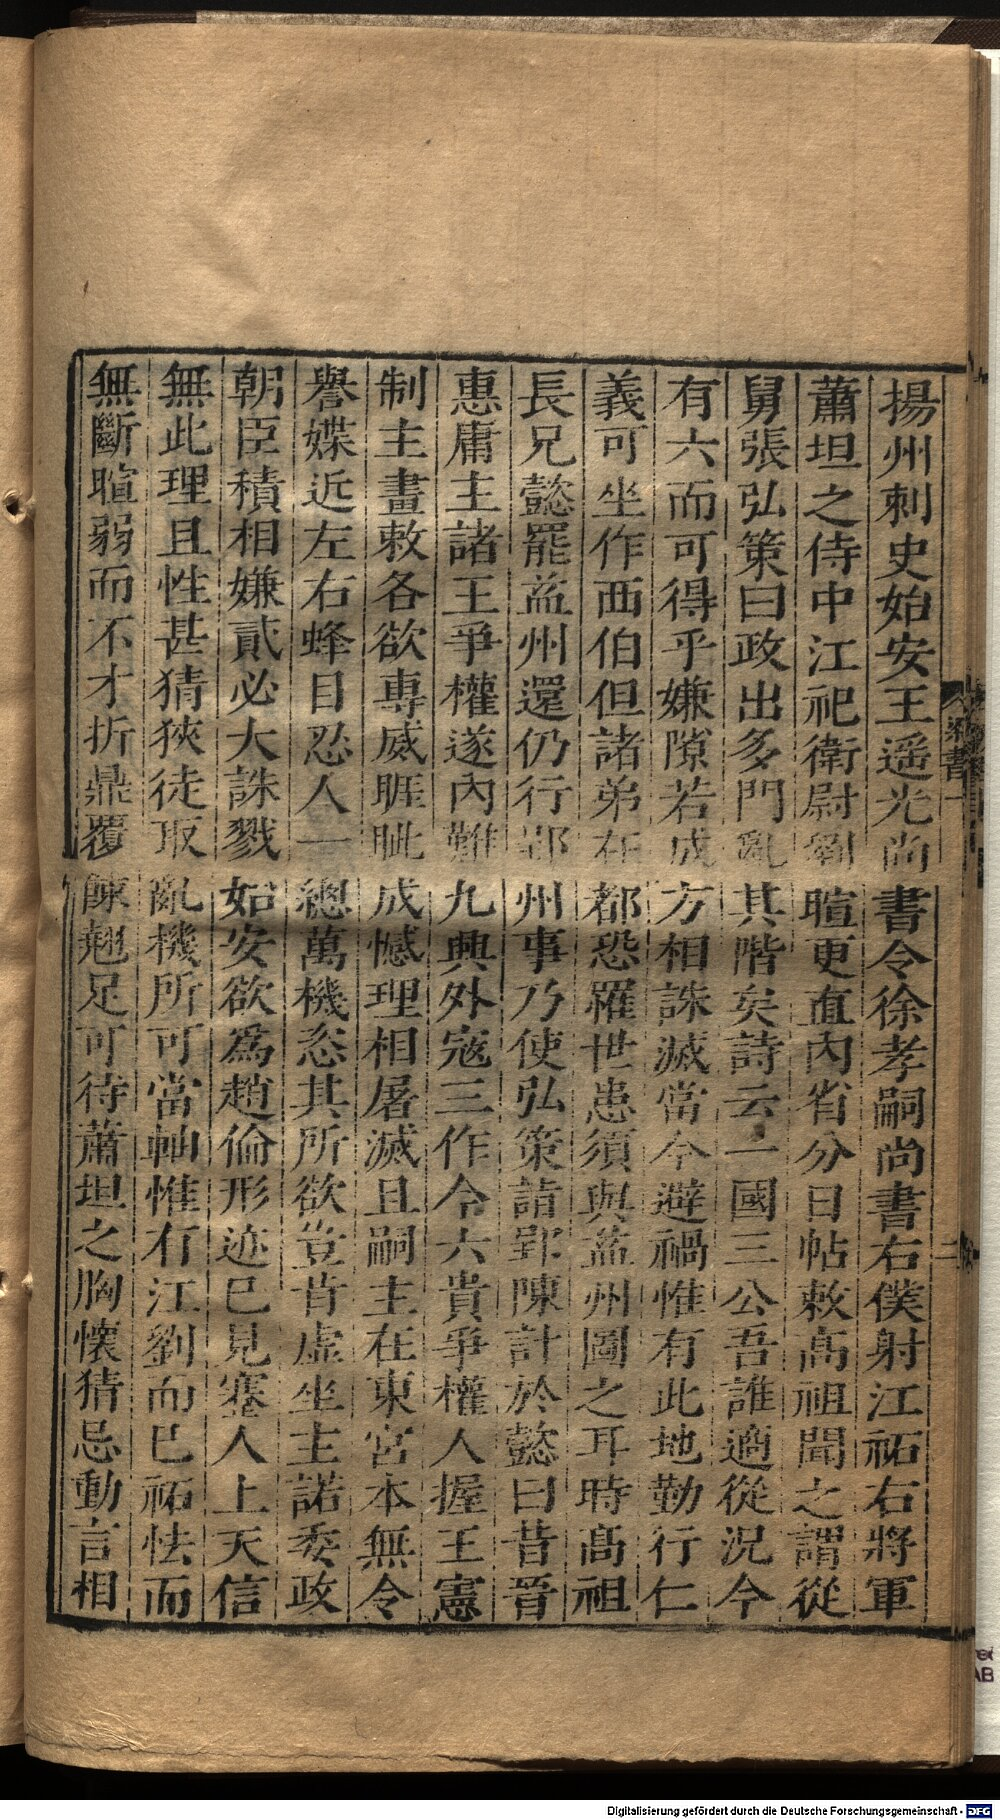 揚州刺史始安王遥光尚書令徐孝嗣尚書右僕射江祏右將軍
蕭坦之侍中江祀衛尉劉暄更直内省分日帖敕髙祖聞之謂從
舅張弘策曰政出多門亂其階矣詩云一國三公吾誰適從況今
有六而可得乎嫌隙若成方相誅滅當今避禍惟有此地勤行仁
義可坐作西伯但諸弟在都恐羅世患須與益州圖之耳時髙祖
長兄懿罷益州還仍行郢州事乃使弘策詣郢陳計於懿曰昔晉
惠庸主諸王爭權遂内難九興外寇三作今六貴爭權人握王憲
制主畫敕各欲專威睚眦成憾理相屠滅且嗣主在東宮本無令
譽媟近左右蜂目忍人一總萬機恣其所欲豈肯虚坐主諾委政
朝臣積相嫌貳必大誅戮如安欲爲趙倫形迹已見蹇人上天信
無此理且性甚猜狹徒取亂機所可當軸惟有江劉而已祏怯而
無斷暄弱而不才折鼎覆餗翹足可待蕭坦之胸懷猜忌動言相
梁書一
二
Digitalisierung gefördert durch die Deutsche Forschungsgemeinschaft - DFG